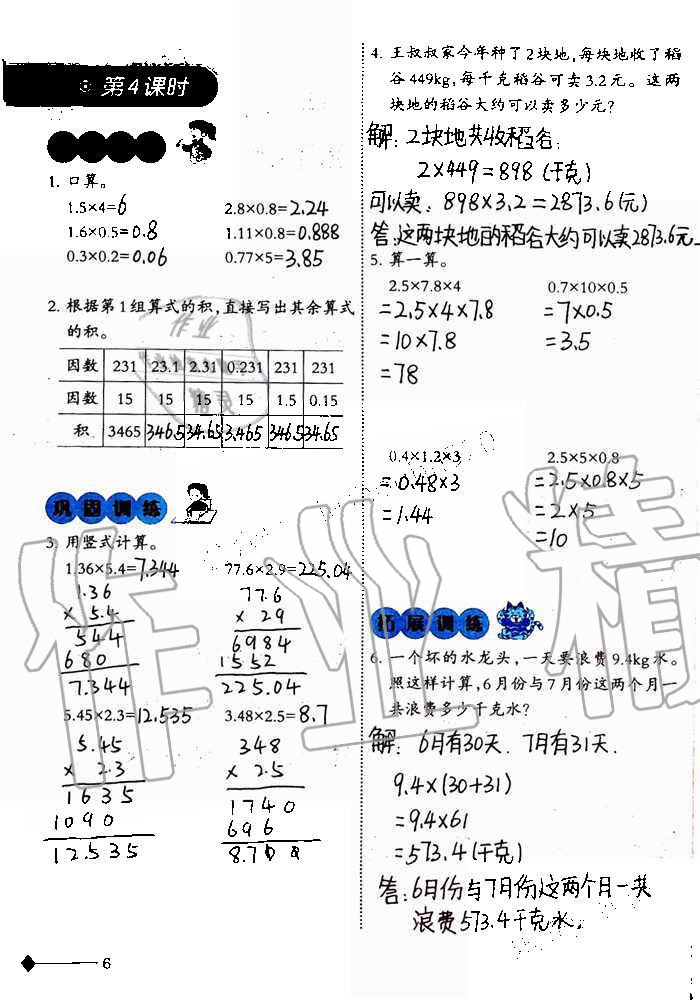 第4课时
1. 口算。
1.5×4=6
2.8×0.8=2.24
1.6×0.5=0.8
1.11×0.8=0.888
0.3×0.2=0.06
0.77×5=3.85
2. 根据第1组算式的积,直接写出其余算式
的积。
因数 231 23.1 2.31 0.231 231 231
因数 15 15 15 15 1.5 0.15
积 3465 346.5 34.65 3.465 346.5 34.65
巩固训练
3. 用竖式计算。
1.36×5.4=7.344
77.6×2.9=225.04
1.36
× 5.4
544
680
7.344
77.6
× 29
6984
1552
225.04
5.45×2.3=12.535
3.48×2.5=8.7
5.45
× 2.3
1635
1090
12.535
348
× 2.5
1740
696
8.700
6
4. 王叔叔家今年种了2块地,每块地收了稻
谷449kg,每千克稻谷可卖3.2元。这两
块地的稻谷大约可以卖多少元?
解:2块地共收稻谷:
2×449=898(千克)
可以卖:898×3.2=2873.6(元)
答:这两块地的稻谷大约可以卖2873.6元
5. 算一算。
2.5×7.8×4
=2.5×4×7.8
=10×7.8
=78
0.7×10×0.5
=7×0.5
=3.5
0.4×1.2×3
=0.48×3
=1.44
2.5×5×0.8
=2.5×0.8×5
=2×5
=10
拓展训练
6. 一个坏的水龙头,一天要浪费9.4kg水。
照这样计算,6月份与7月份这两个月一
共浪费多少千克水?
解:6月有30天.7月有31天.
9.4×(30+31)
=9.4×61
=573.4(千克)
答:6月份与7月份这两个月一共
浪费573.4千克水。
作业精